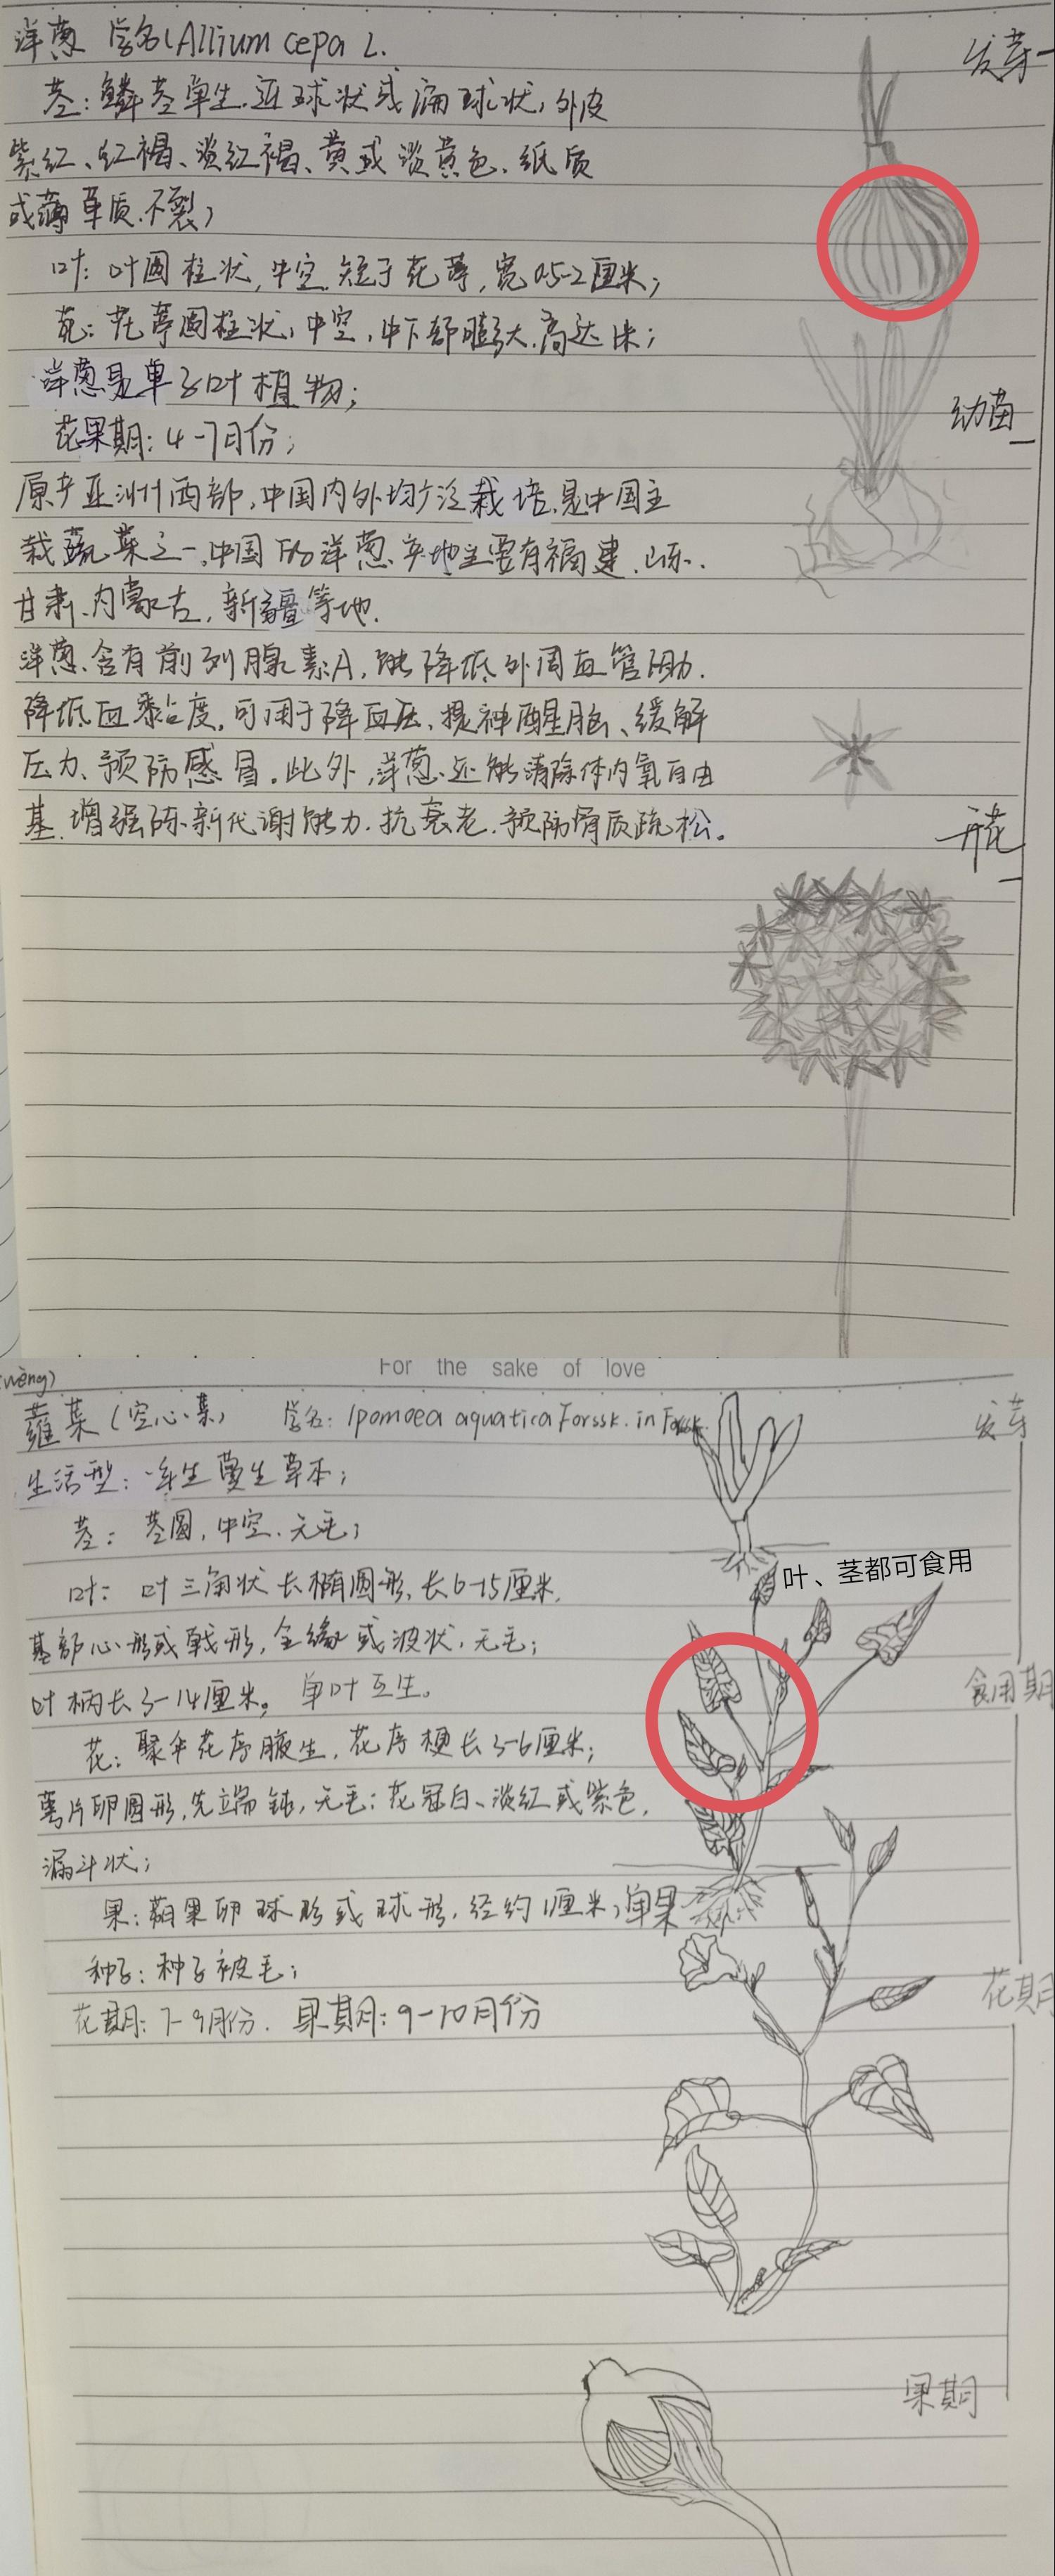 洋葱 学名(Allium cepa L.
发芽
茎:鳞茎单生,近球状或扁球状,外皮
紫红、红褐、淡红褐、黄或淡黄色,纸质
或薄革质,不裂;
叶:叶圆柱状,中空,短于花葶,宽0.5-2厘米;
花:花葶圆柱状,中空,中下部膨大,高达1米;
洋葱是单子叶植物;
幼苗
花果期:4-7月份;
原产亚洲西部,中国内外均广泛栽培,是中国主
栽蔬菜之一,中国的洋葱产地主要有福建、山东、
甘肃、内蒙古、新疆等地.
洋葱含有前列腺素A,能降低外周血管阻力.
降低血黏度,可用于降血压、提神醒脑、缓解
压力、预防感冒.此外,洋葱还能清除体内氧自由
基,增强陈新代谢能力,抗衰老,预防骨质疏松。
开花
For the sake of love
(wèng)
蕹菜(空心菜) 学名:Ipomoea aquatica Forssk. in Forssk.
发芽
生活型:一年生蔓生草本;
茎:茎圆,中空,无毛;
叶、茎都可食用
叶:叶三角状长椭圆形,长6-15厘米,
基部心形或戟形,全缘或波状,无毛;
叶柄长3-14厘米。单叶互生。
食用期
花:聚伞花序腋生,花序梗长3-6厘米;
萼片卵圆形,先端钝,无毛;花冠白、淡红或紫色,
漏斗状;
果:蒴果卵球形或球形,径约1厘米,单果
种子:种子被毛;
花期
花期:7-9月份. 果期:9-10月份
果期